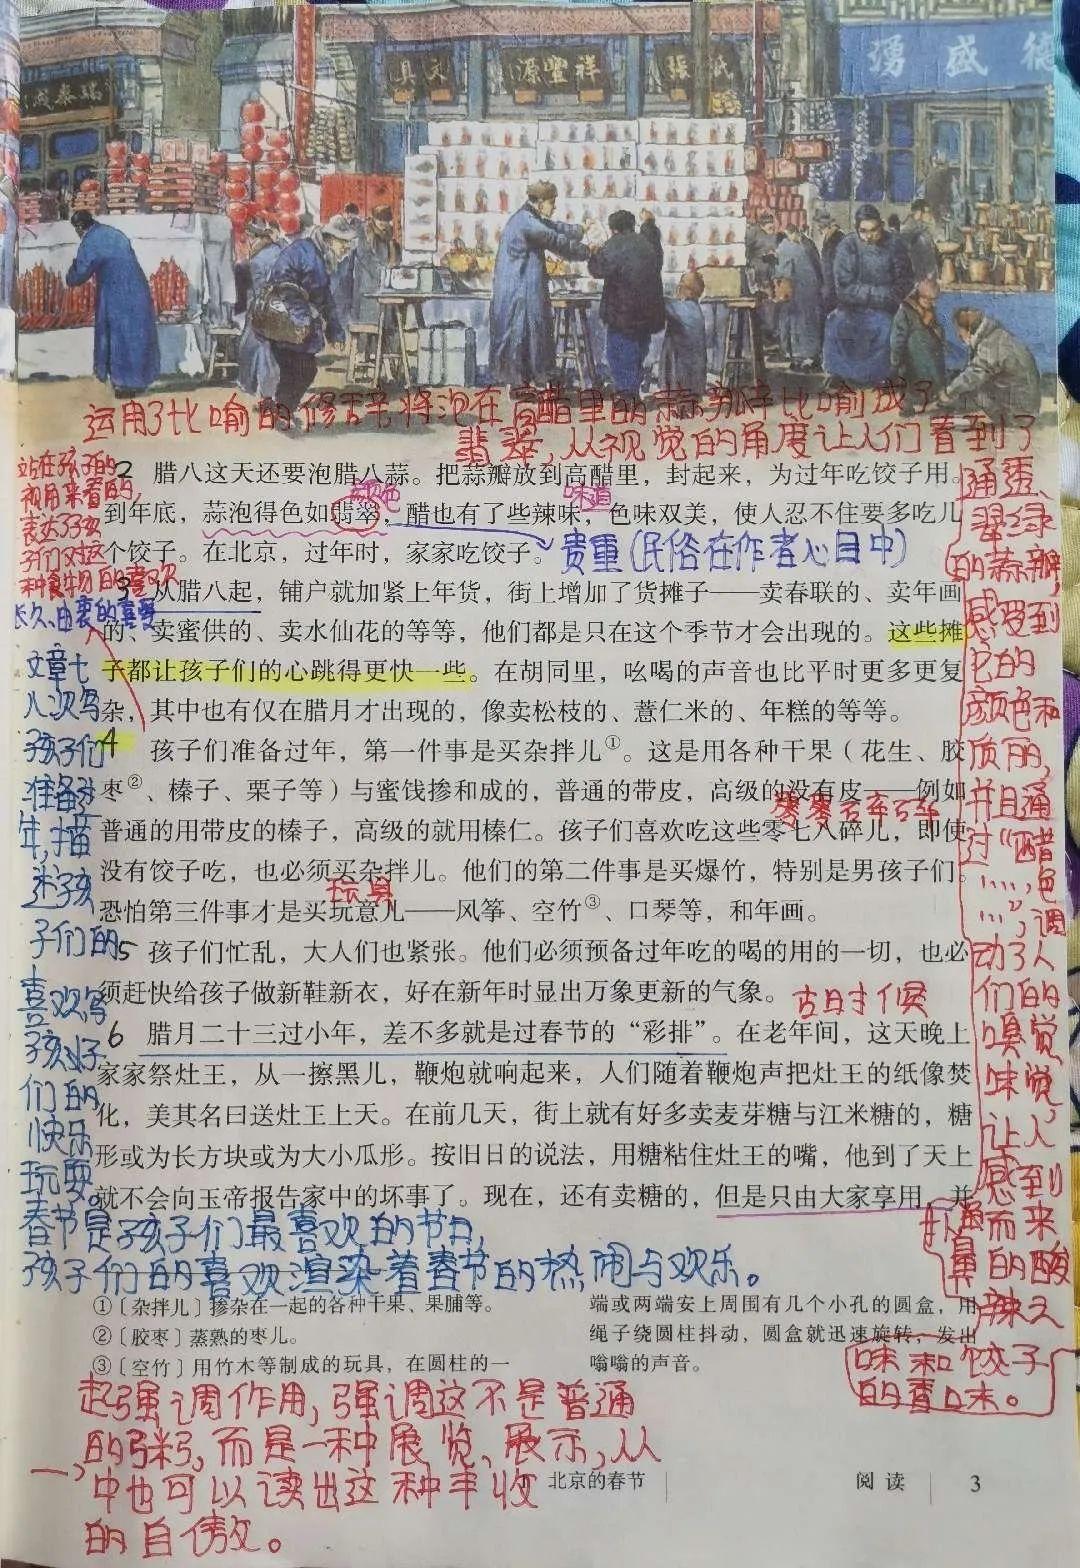 源豐祥
湧盛德
运用了比喻的修辞将泡在高醋里的蒜瓣比喻成了
翡翠,从视觉的角度让人们看到了
通
翠绿
的蒜瓣
感受到
它的
颜色和
质的,
并且通
过“醋
……”,色调
动了人
们的
嗅觉
味觉,
让人
感到
扑鼻而来
的酸
辣
味和饺子
的喜味。
站在孩子的
视角来看的,
表达了孩
子们对这
种食物的喜欢
长久、由衷的喜爱
颜色
味道
2 腊八这天还要泡腊八蒜。把蒜瓣放到高醋里,封起来,为过年吃饺子用。
到年底,蒜泡得色如翡翠,醋也有了些辣味,色味双美,使人忍不住要多吃几
个饺子。在北京,过年时,家家吃饺子。
贵重(民俗在作者心目中)
3 从腊八起,铺户就加紧上年货,街上增加了货摊子——卖春联的、卖年画
的、卖蜜供的、卖水仙花的等等,他们都是只在这个季节才会出现的。这些摊
子都让孩子们的心跳得更快一些。在胡同里,吆喝的声音也比平时更多更复
杂,其中也有仅在腊月才出现的,像卖松枝的、薏仁米的、年糕的等等。
4 孩子们准备过年,第一件事是买杂拌儿①。这是用各种干果(花生、胶
枣②、榛子、栗子等)与蜜饯掺和成的,普通的带皮,高级的没有皮——例如
零零碎碎
普通的用带皮的榛子,高级的就用榛仁。孩子们喜欢吃这些零七八碎儿,即使
没有饺子吃,也必须买杂拌儿。他们的第二件事是买爆竹,特别是男孩子们。
玩具
恐怕第三件事才是买玩意儿——风筝、空竹③、口琴等,和年画。
5 孩子们忙乱,大人们也紧张。他们必须预备过年吃的喝的用的一切,也必
须赶快给孩子做新鞋新衣,好在新年时显出万象更新的气象。
古时候
6 腊月二十三过小年,差不多就是过春节的“彩排”。在老年间,这天晚上
家家祭灶王,从一擦黑儿,鞭炮就响起来,人们随着鞭炮声把灶王的纸像焚
化,美其名曰送灶王上天。在前几天,街上就有好多卖麦芽糖与江米糖的,糖
形或为长方块或为大小瓜形。按旧日的说法,用糖粘住灶王的嘴,他到了天上
就不会向玉帝报告家中的坏事了。现在,还有卖糖的,但是只由大家享用,并
文章七
八次写
孩子们
准备过
年,描
述孩
子们的
喜欢写
孩子
们的
快乐
玩耍。
春节是孩子们最喜欢的节日,
孩子们的喜欢渲染着春节的热闹与欢乐。
①〔杂拌儿〕掺杂在一起的各种干果、果脯等。
②〔胶枣〕蒸熟的枣儿。
③〔空竹〕用竹木等制成的玩具,在圆柱的一
端或两端安上周围有几个小孔的圆盒,用
绳子绕圆柱抖动,圆盒就迅速旋转,发出
嗡嗡的声音。
起强调作用,强调这不是普通
的粥,而是一种展览、展示,从
中也可以读出这种丰收
的自傲。
北京的春节
阅读
3